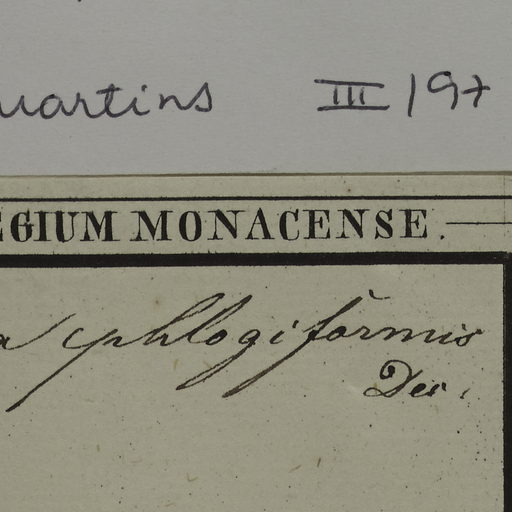 martins III 197
EGIUM MONACENSE.
a phlogiformis
Der.